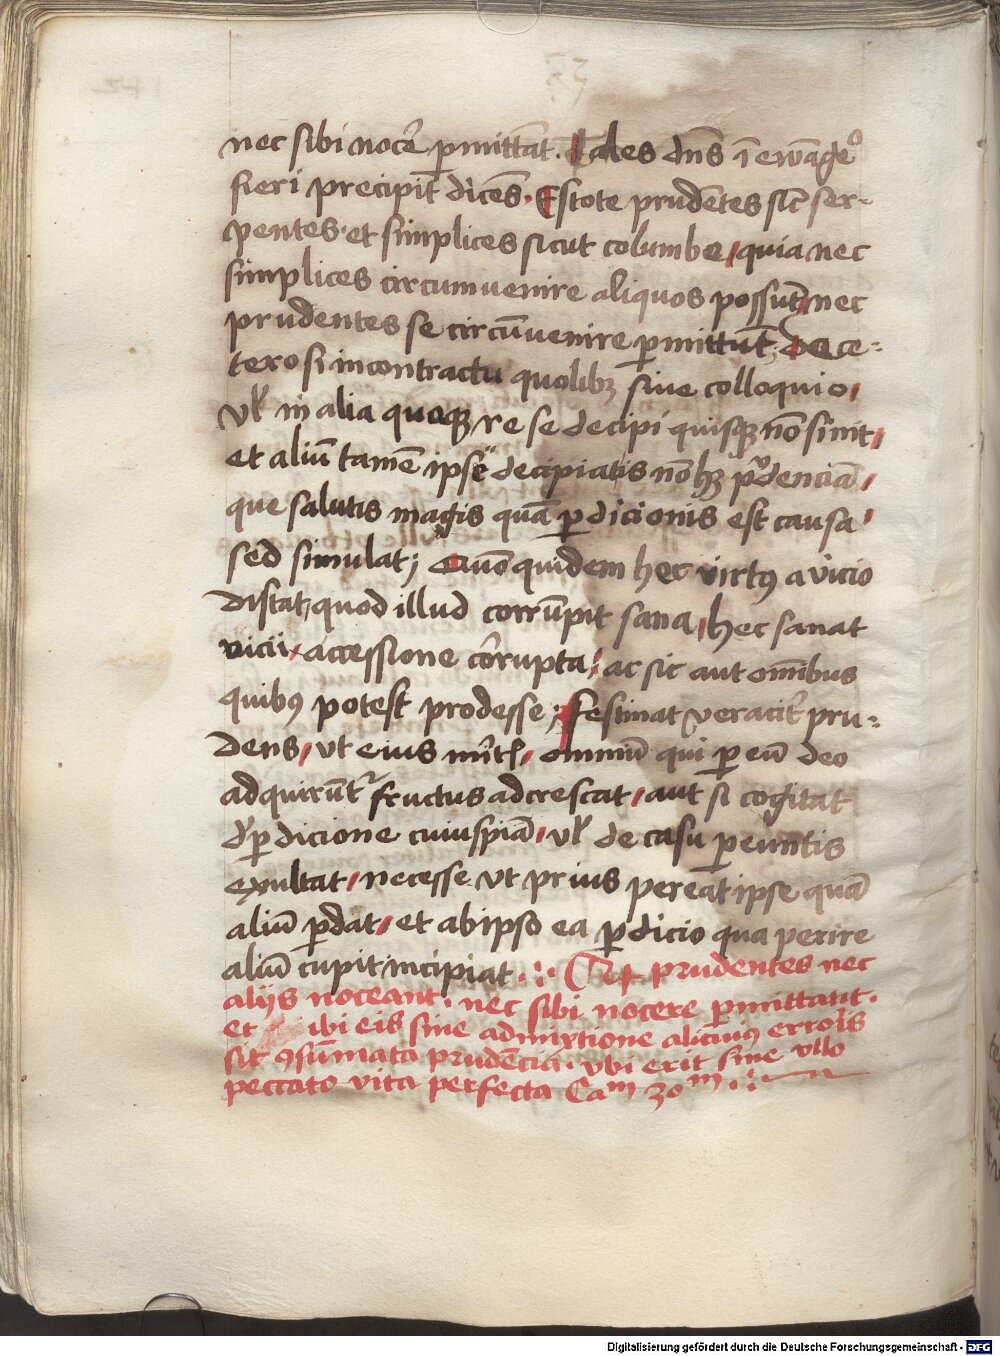 nec sibi nocē̄ p̱mittāt. Tales dn̄s ī ewāgeº
fieri precipit dicēs. Estote prudētes sic̄ ser-
pentes. et simplices sicut columbe, quia nec
simplices circumuenire aliquos possūt, nec
prudentes se circūuenire p̱mittūt; de ce-
tero si in contractu quolibꝫ siue colloquio,
vl̓ in alia quaqꝫ re se decipi quisqꝫ nō sinit,
et aliū tamē ipse decipiat is nō hꝫ prudenciā,
que salutis magis quā p̱dicionis est causa,
sed simulat; Quō quidem hec virtꝰ a vicio
distat, quod illud corrūpit sana, hec sanat
vicii, accessione corrupta, ac sic aut omībus
quibꝰ potest prodesse; festinat veracit̓ pru-
dens, vt eius omniū qui p̱ eū deo
adquirūt᷑ fructus adcrescat, aut si cogitat
d̓ p̱dicione cuiuspiā, vl̓ de casu p̱euntis
exultat, necesse vt prius pereat ipse quā
aliū p̱dat, et ab ipso ea p̱dicio qua perire
aliū cupit incipiat. prudentes nec
alijs noceant. nec sibi nocere p̱mittant.
et ibi eis sine admixtione alicuiꝰ erroris
sit ꝯsūmata prudēcia. vbi erit sine vllo
peccato vita perfecta Caᵐ 30ᵐ
Digitalisierung gefördert durch die Deutsche Forschungsgemeinschaft - DFG